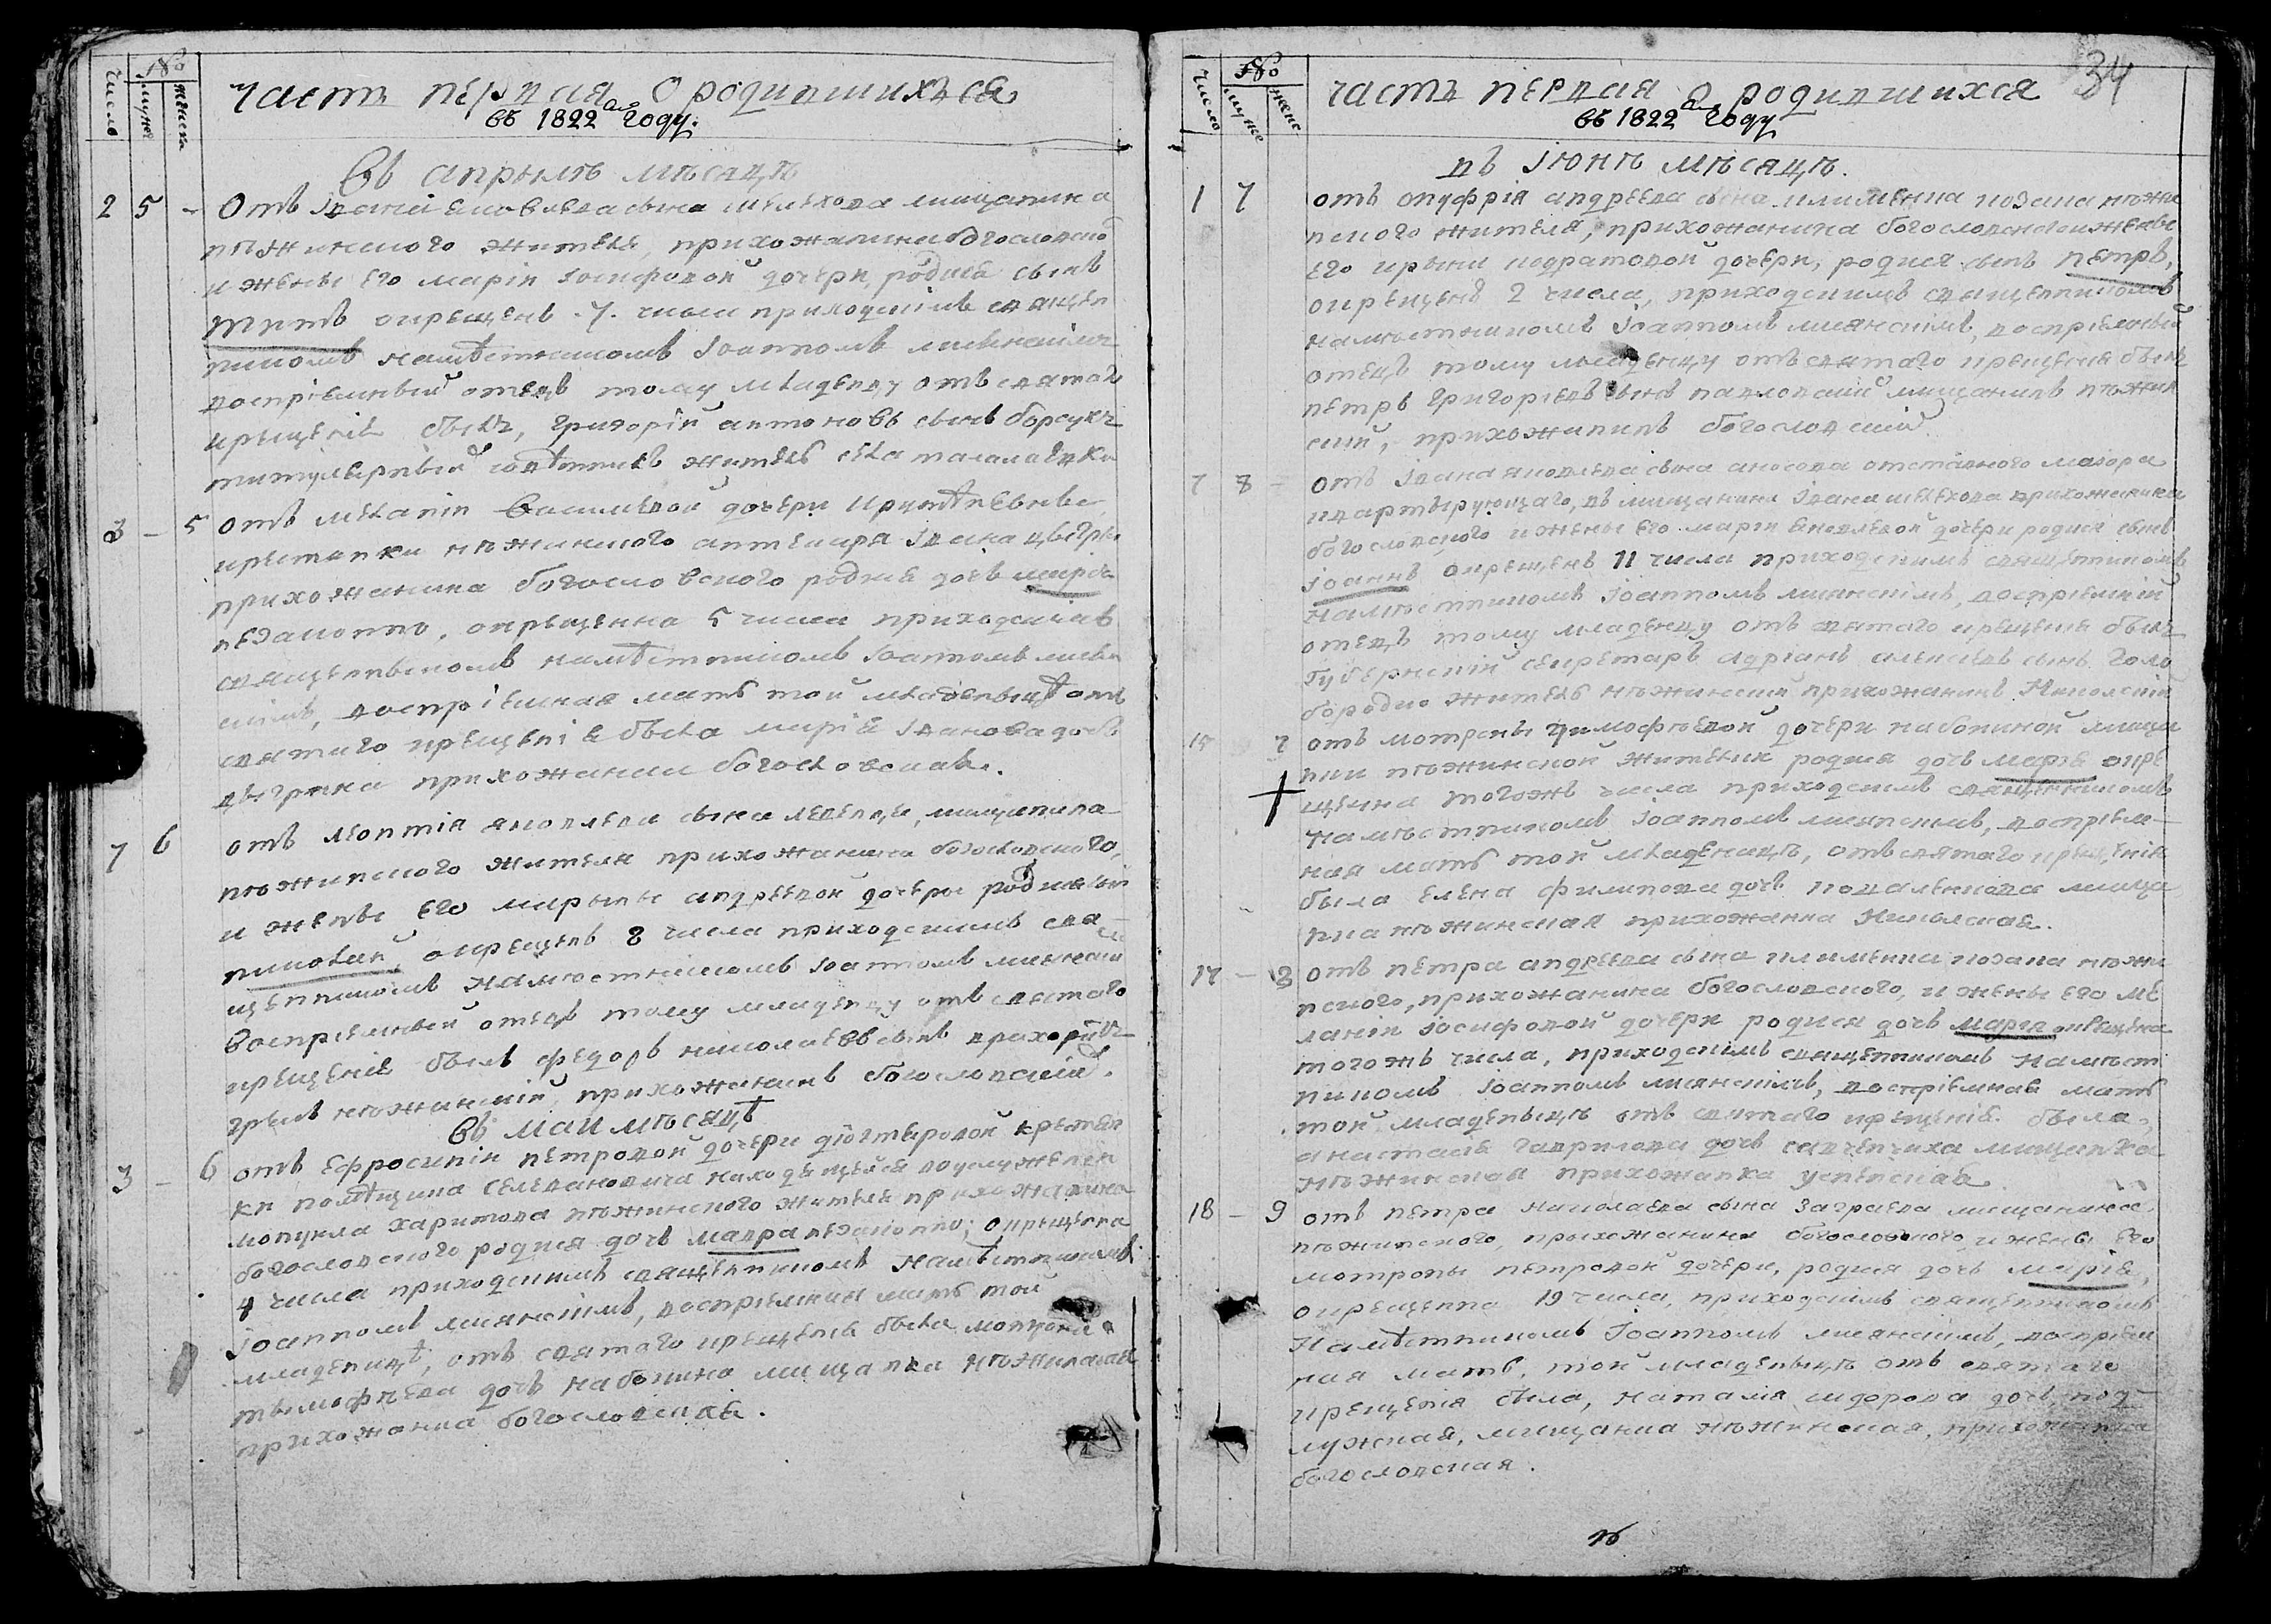 число
№
муже
женска
часть первая о родившихъся
въ 1822 году.
Въ апрылѣ мѣсяцѣ
2 5 - Отъ Івана Яковлева сына шелехова мищанина
нѣжинского жителя, прихожанина богословско
и жены его маріи іосифовой дочери, родися сынъ
титъ окрещенъ 7. числа приходскимъ священ
никомъ намѣстникомъ Іоанномъ
воспріемный отецъ тому младенцу отъ святого
крещенія былъ, григорій антоновъ сынъ борсукъ
титулярный совѣтникъ житель села талалаевки
3 - 5 отъ меланіи Василевой дочери
крестянки нѣжинского аптекаря Івана
прихожанина богословского родися дочь мавра
незаконно, окрещенна 5 числа приходскимъ
священникомъ намѣстникомъ Іоанномъ
воспріемная мать той младеницѣ отъ
святаго крещенія была марія Іванова дочь
прихожанка богословская.
7 6 отъ леонтія яковлева сына мищанина
нѣжинского жителя прихожанина богословского,
и жены его марыны андреевой дочери родися сынъ
николай, окрещенъ 8 числа приходскимъ свя
щенникомъ намѣстникомъ іоанномъ
Воспріемный отецъ тому младенцу отъ святого
крещенія былъ федоръ николаевъ сынъ
грекъ нѣжинскій, прихожанинъ богословскій.
Въ маи мѣсяцѣ
3 - 6 отъ ефросиніи петровой дочери крестян
ки помѣщика находящейся въ услуженіи
харитова нѣжинского жителя прихожанина
богословского родися дочь мавра незаконно, окрещенна
4 числа приходскимъ священникомъ намѣстникомъ
іоанномъ воспріемная мать той
младеницѣ, отъ святаго крещенія была мотрона
тымофѣева дочь набокина мищанка нѣжинская
прихожанка богословская.
34
число
№
муже
женс
часть первая о родившихся
въ 1822 году
въ Іюнѣ мѣсяцѣ.
1 7 отъ онуфрія андреева сына клименка козака нѣжи
нского жителя, прихожанина богословского и жены
его ирыни кодратовой дочери, родися сынъ петръ,
окрещенъ 2 числа, приходскимъ священникомъ
намѣстникомъ Іоанномъ воспріемный
отецъ тому младенцу отъ святаго крещенія былъ
петръ григоріевъ сынъ павловскій мищанинъ нѣжин
скій, прихожанинъ богословскій.
7 8 - отъ Івана яковлева сына аносова отставного маіора
квартырующаго, въ мищанина Івана шелехова прихожанина
богословского и жены его маріи яковлевой дочери родися сынъ
іоаннъ окрещенъ 11 числа приходскимъ священникомъ
намѣстникомъ Іоанномъ воспріемный
отецъ тому младенцу отъ святого крещенія былъ
губернскій секретарь адріанъ алексеевъ сынъ голо
бородко житель нѣжинскій прихожанинъ Николскій
7 отъ мотроны тимофѣевой дочери набокиной мища
нки нѣжинской жителки родися дочь марія окре
щенна тогожъ числа приходскимъ священникомъ
намѣстникомъ Іоанномъ воспріем
ная мать той младеницѣ, отъ святаго крещенія
была елена филипова дочь коваленкова мища
нка нѣжинская прихожанка Николская.
17 - 8 отъ петра андреева сына клименка козака нѣжи
нского, прихожанина богословского, и жены его ме
ланіи іосифовой дочери родися дочь марія окрещена
тогожъ числа, приходскимъ священникомъ намѣст
никомъ Іоанномъ воспріемная мать
той младеницѣ отъ святаго крещенія была,
анастасія гаврилова дочь мищанка
нѣжинская прихожанка успенская
18 - 9 отъ петра николаева сына заграева мищанина
нѣжинского, прихожанина богословского и жены его
мотроны петровой дочери, родися дочь марія,
окрещенна 19 числа, приходскимъ священникомъ
Намѣстникомъ Іоанномъ воспріем
ная мать, той младеницѣ отъ святаго
крещенія была, наталія сидорова дочь, под
лужская, мищанка нѣжинская, прихожанка
богословская.